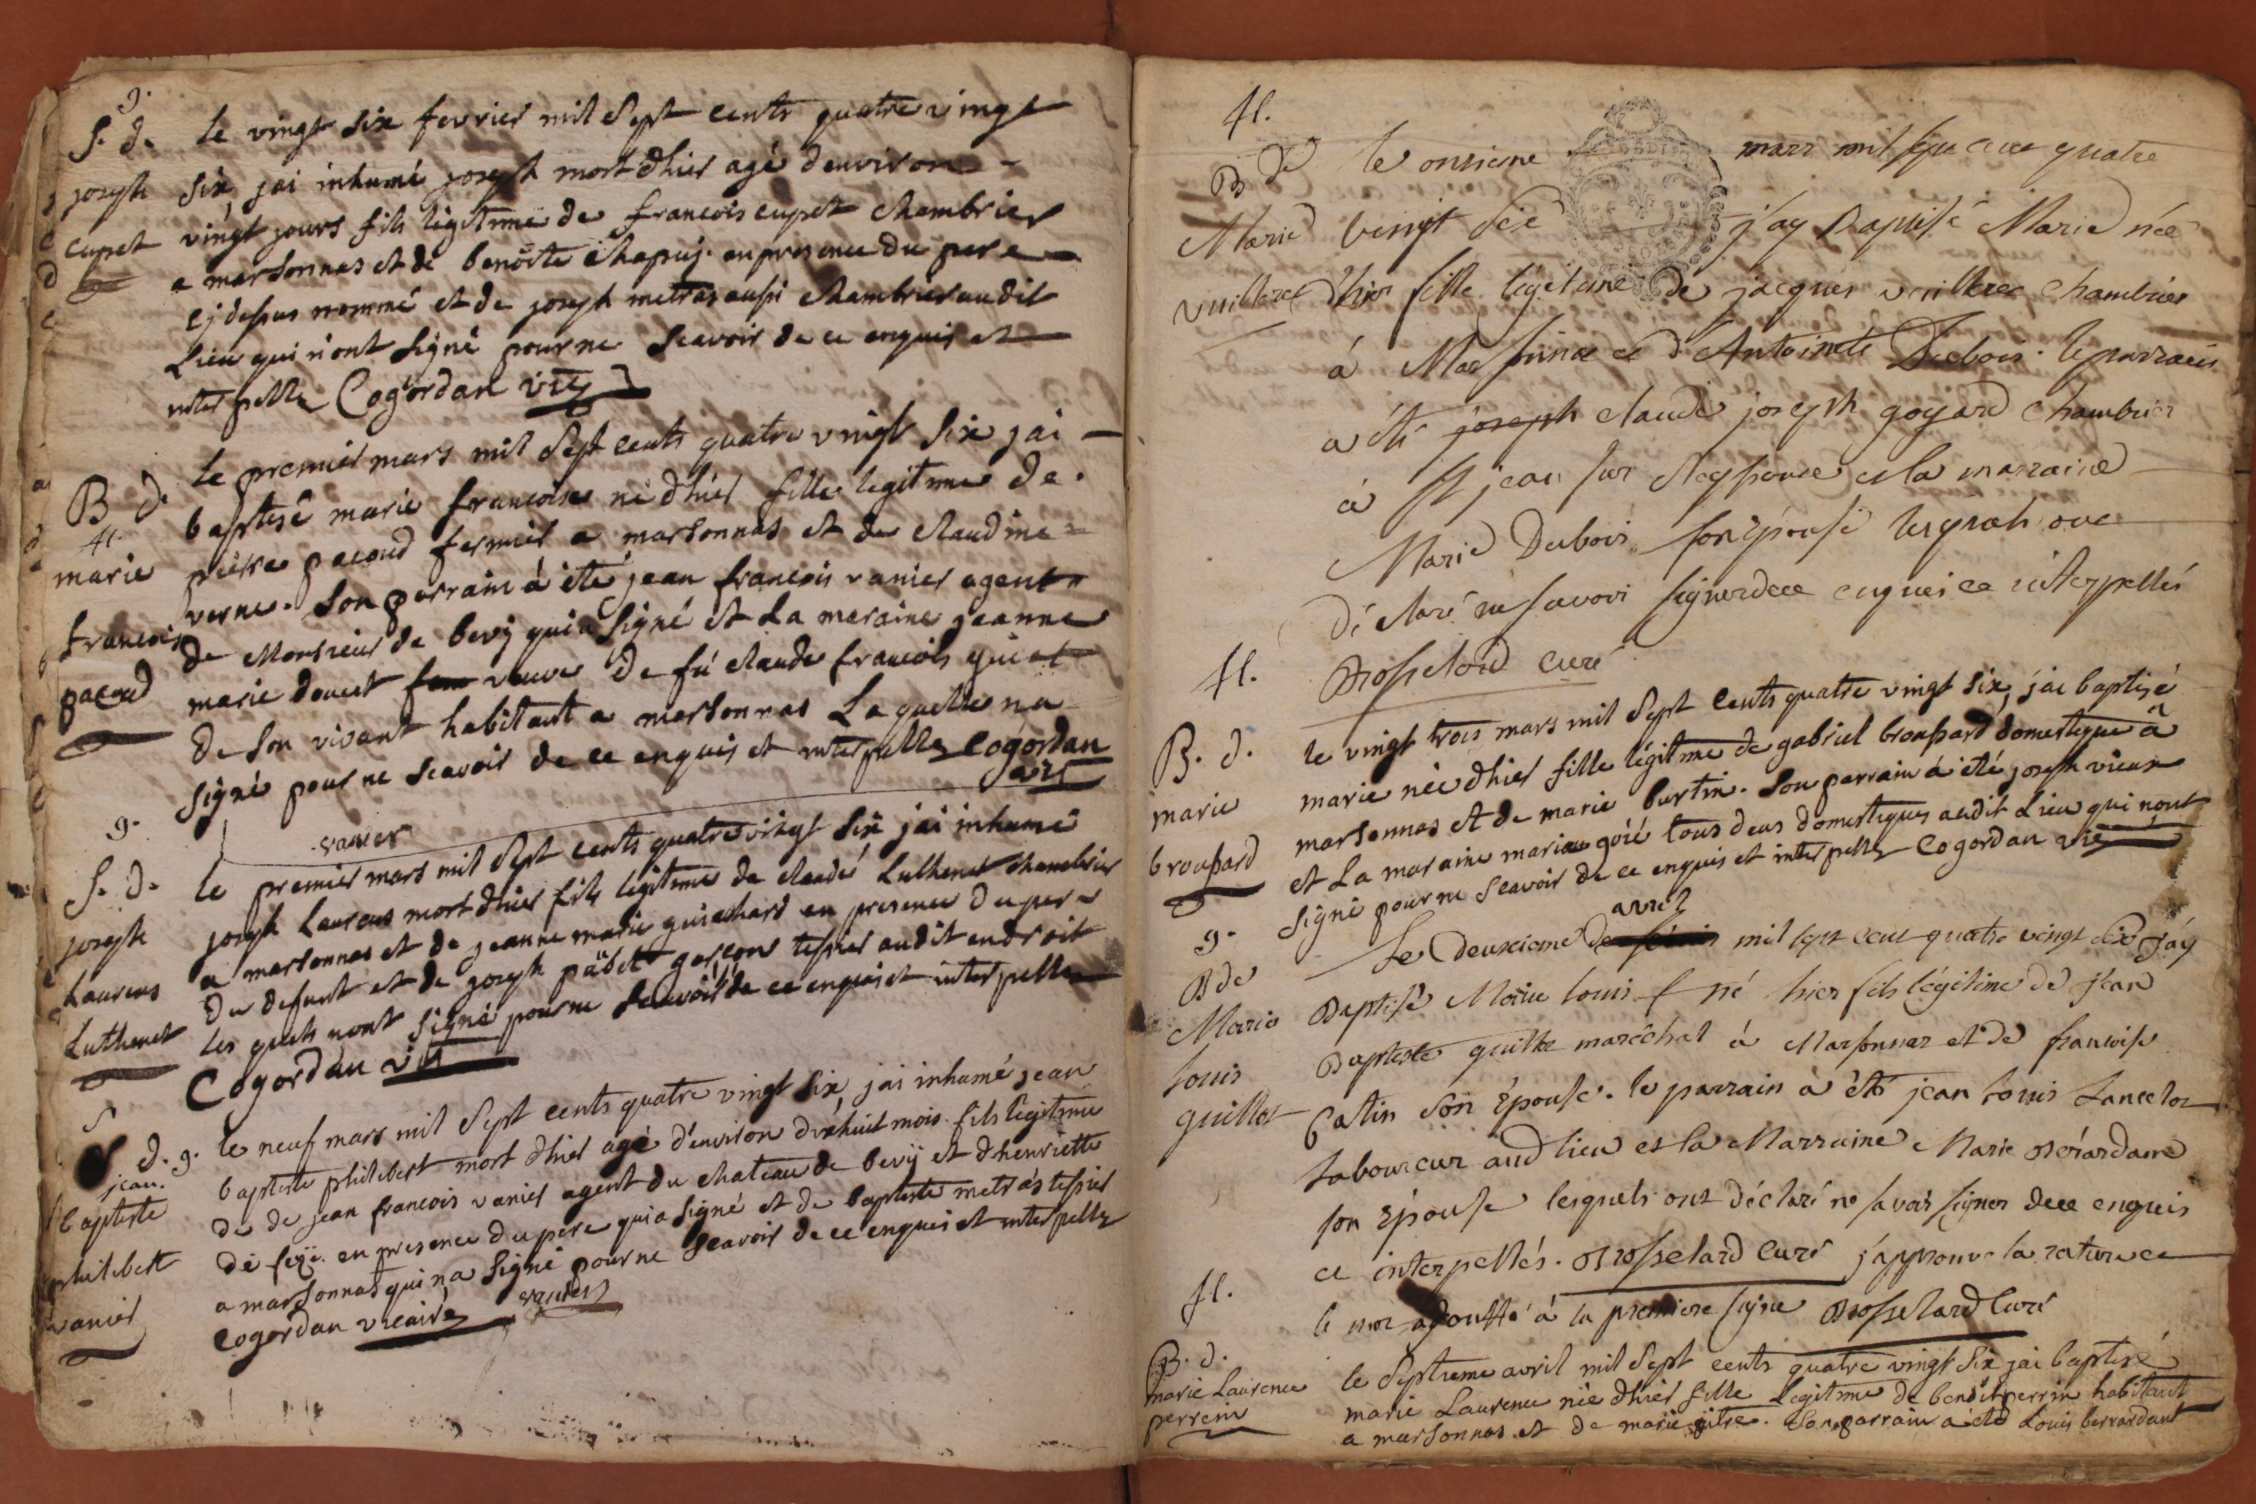 g.
S. d.
joseph
cupet
le vingt six fevrier mil Sept cents quatre vingt
six, jai inhumé joseph mort dhier agé denviron
vingt jours fils légitime de francois cupet chambrier
a marsonnas et de benoite Chapuj. en presence du pere
cj dessus nommé et de joseph metras aussi chambrier audit
Lieu qui n'ont signé pour ne scavoir de ce enquis et
interpellz Cogordan vic
B d.
fl.
marie
francoise
pacoud
le premier mars mil Sept cents quatre vingt six jai
baptisé marie francoise né dhier fille legitime de
pierre pacoud fermier a marsonnas et de claudine
verne. Son parrain à été jean francois vanier agent
de Monsieur de bevÿ qui a signé et La maraine jeanne
marie doucet veuve de fú claude francois quiet
de Son vivant habitant a marsonnas Laquelle na
signé pour ne scavoir de ce enquis et interpellz Cogordan
vic
vanier
g.
S. d.
joseph
Laurens
Luthenet
le premier mars mil Sept cents quatre vingt six jai inhumé
joseph Laurens mort dhier fils legitime de claude Luthenet chambrier
a marsonnas et de jeanne marie guichard en presence du pere
du defunt et de joseph garcon tessier audit endroit
les quels nont signé pour ne scavoir de ce enquis et interpellz
Cogordan vic
S d. g.
jean
baptiste
philibert
vanier
le neuf mars mil Sept cents quatre vingt six, jai inhumé jean
baptiste philibert mort dhier agé denviron dixhuit mois fils legitime
de de jean francois vanier agent du chateau de bevÿ et dhenriette
de en presence du pere qui a signé et de baptiste metrás tessier
a marsonnas qui na signé pour ne scavoir de ce enquis et interpellz
Cogordan vicaire vanier
fl.
B de
Marie
vuilleret
le onzieme mars mil sept cent quatre
vingt Six j'ay Baptisé Marie née
d'hier fille légitime de jacques vuilleret chambrier
à Marsonnas et d'Antoinette Dubois. le parrain
a été joseph claude joseph goyard chambrier
à St jean sur Reyssouze et la marraine
Marie Dubois son épouse lesquels ont
déclaré ne savoir signer de ce enquis et interpellés
Brosselard curé
fl.
B. d.
marie
broussard
le vingt trois mars mil Sept Cents quatre vingt six, jai baptizé
marie née dhier fille légitime de gabriel broussard domestique à
marsonnas et de marie burtin. Son parrain à été joseph vieux
et La maraine marie goié tous deux domestiques audit Lieu qui nont
signé pour ne scavoir de ce enquis et interpellz Cogordan vic
g.
B de
Marie
louis
guillot
avril
Le deuxieme de mil sept cent quatre vingt six j'ay
Baptisé Marie louis né hier fils légitime de jean
Baptiste guillot maréchal à Marsonnas et de francoise
Catin son épouse. le parrain à été jean louis Lancelot
laboureur aud lieu et la Marraine Marie
son épouse lesquels ont déclaré ne savoir signer de ce enquis
et interpellés. Brosselard curé j'approuve la rature et
le mot adjoutté à la premiere ligne Brosselard curé
fl.
B. d.
marie Laurence
perrein
le Septieme avril mil Sept cents quatre vingt six jai baptizé
marie Laurence née dhier fille Legitime de benoit perrin habitant
a marsonnas et de marie pitre. Son parrain a été Louis berrardant